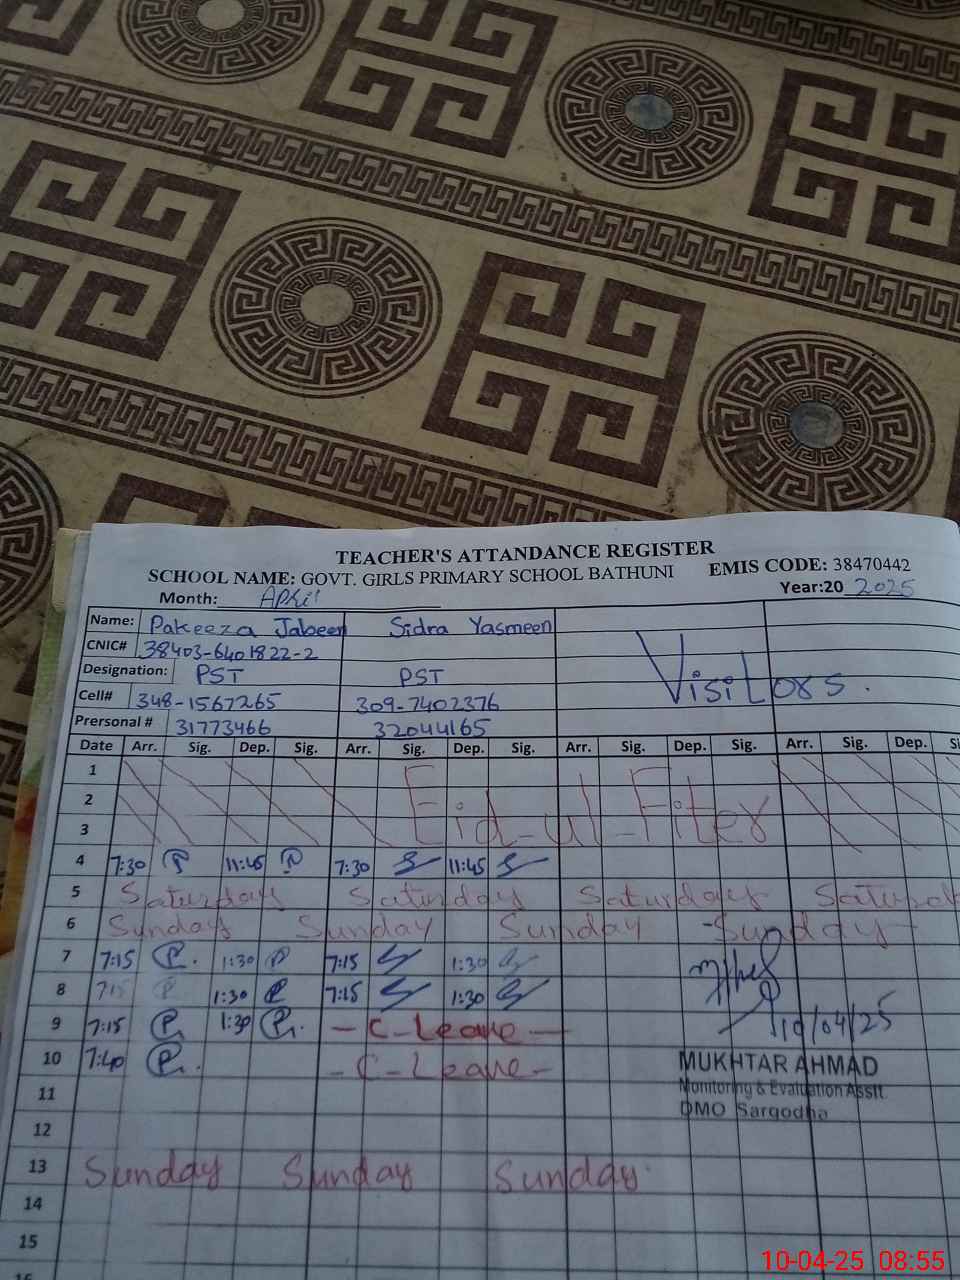 TEACHER'S ATTANDANCE REGISTER
SCHOOL NAME: GOVT. GIRLS PRIMARY SCHOOL BATHUNI EMIS CODE: 38470442
Month: April Year:20 2025
Name: Pakeeza Jabeen Sidra Yasmeen
CNIC# 38403-6401822-2
Visitors.
Designation: PST PST
Cell# 348-1567265 309-7402376
Prersonal # 31773466 32044165
Date Arr. Sig. Dep. Sig. Arr. Sig. Dep. Sig. Arr. Sig. Dep. Sig. Arr. Sig. Dep. Si
1
2 Eid-ul-Fiter
3
4 7:30 P 11:45 P 7:30 11:45
5 Saturday Saturday Saturday Saturd
6 Sunday Sunday Sunday -Sunday-
7 7:15 P. 1:30 P 7:15 1:30
8 7:15 P 1:30 P 7:15 1:30
9 7:15 P. 1:30 P. - C - Leave - 10/04/25
10 7:40 P. - C - Leave - MUKHTAR AHMAD
11 Monitoring & Evaluation Asstt.
DMO Sargodha
12
13 Sunday Sunday Sunday.
14
15
16
10-04-25 08:55